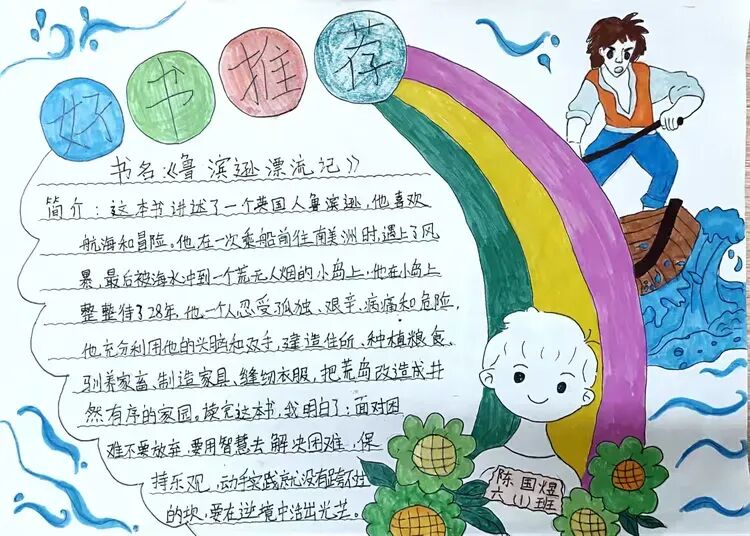 好书推荐
书名:《鲁滨逊漂流记》
简介:这本书讲述了一个英国人鲁滨逊,他喜欢
航海和冒险。他在一次乘船前往南美洲时,遇上了风
暴,最后被海水冲到一个荒无人烟的小岛上,他在小岛上
整整待了28年,他一个人忍受孤独、艰辛、病痛和危险,
他充分利用他的头脑和双手,建造住所、种植粮食、
驯养家畜、制造家具、缝纫衣服,把荒岛改造成井
然有序的家园。读完这本书,我明白了:面对困
难不要放弃,要用智慧去解决困难,保
持乐观,动手实践就没有跨不过
的坎,要在逆境中活出光芒。
陈国煜
六(1)班